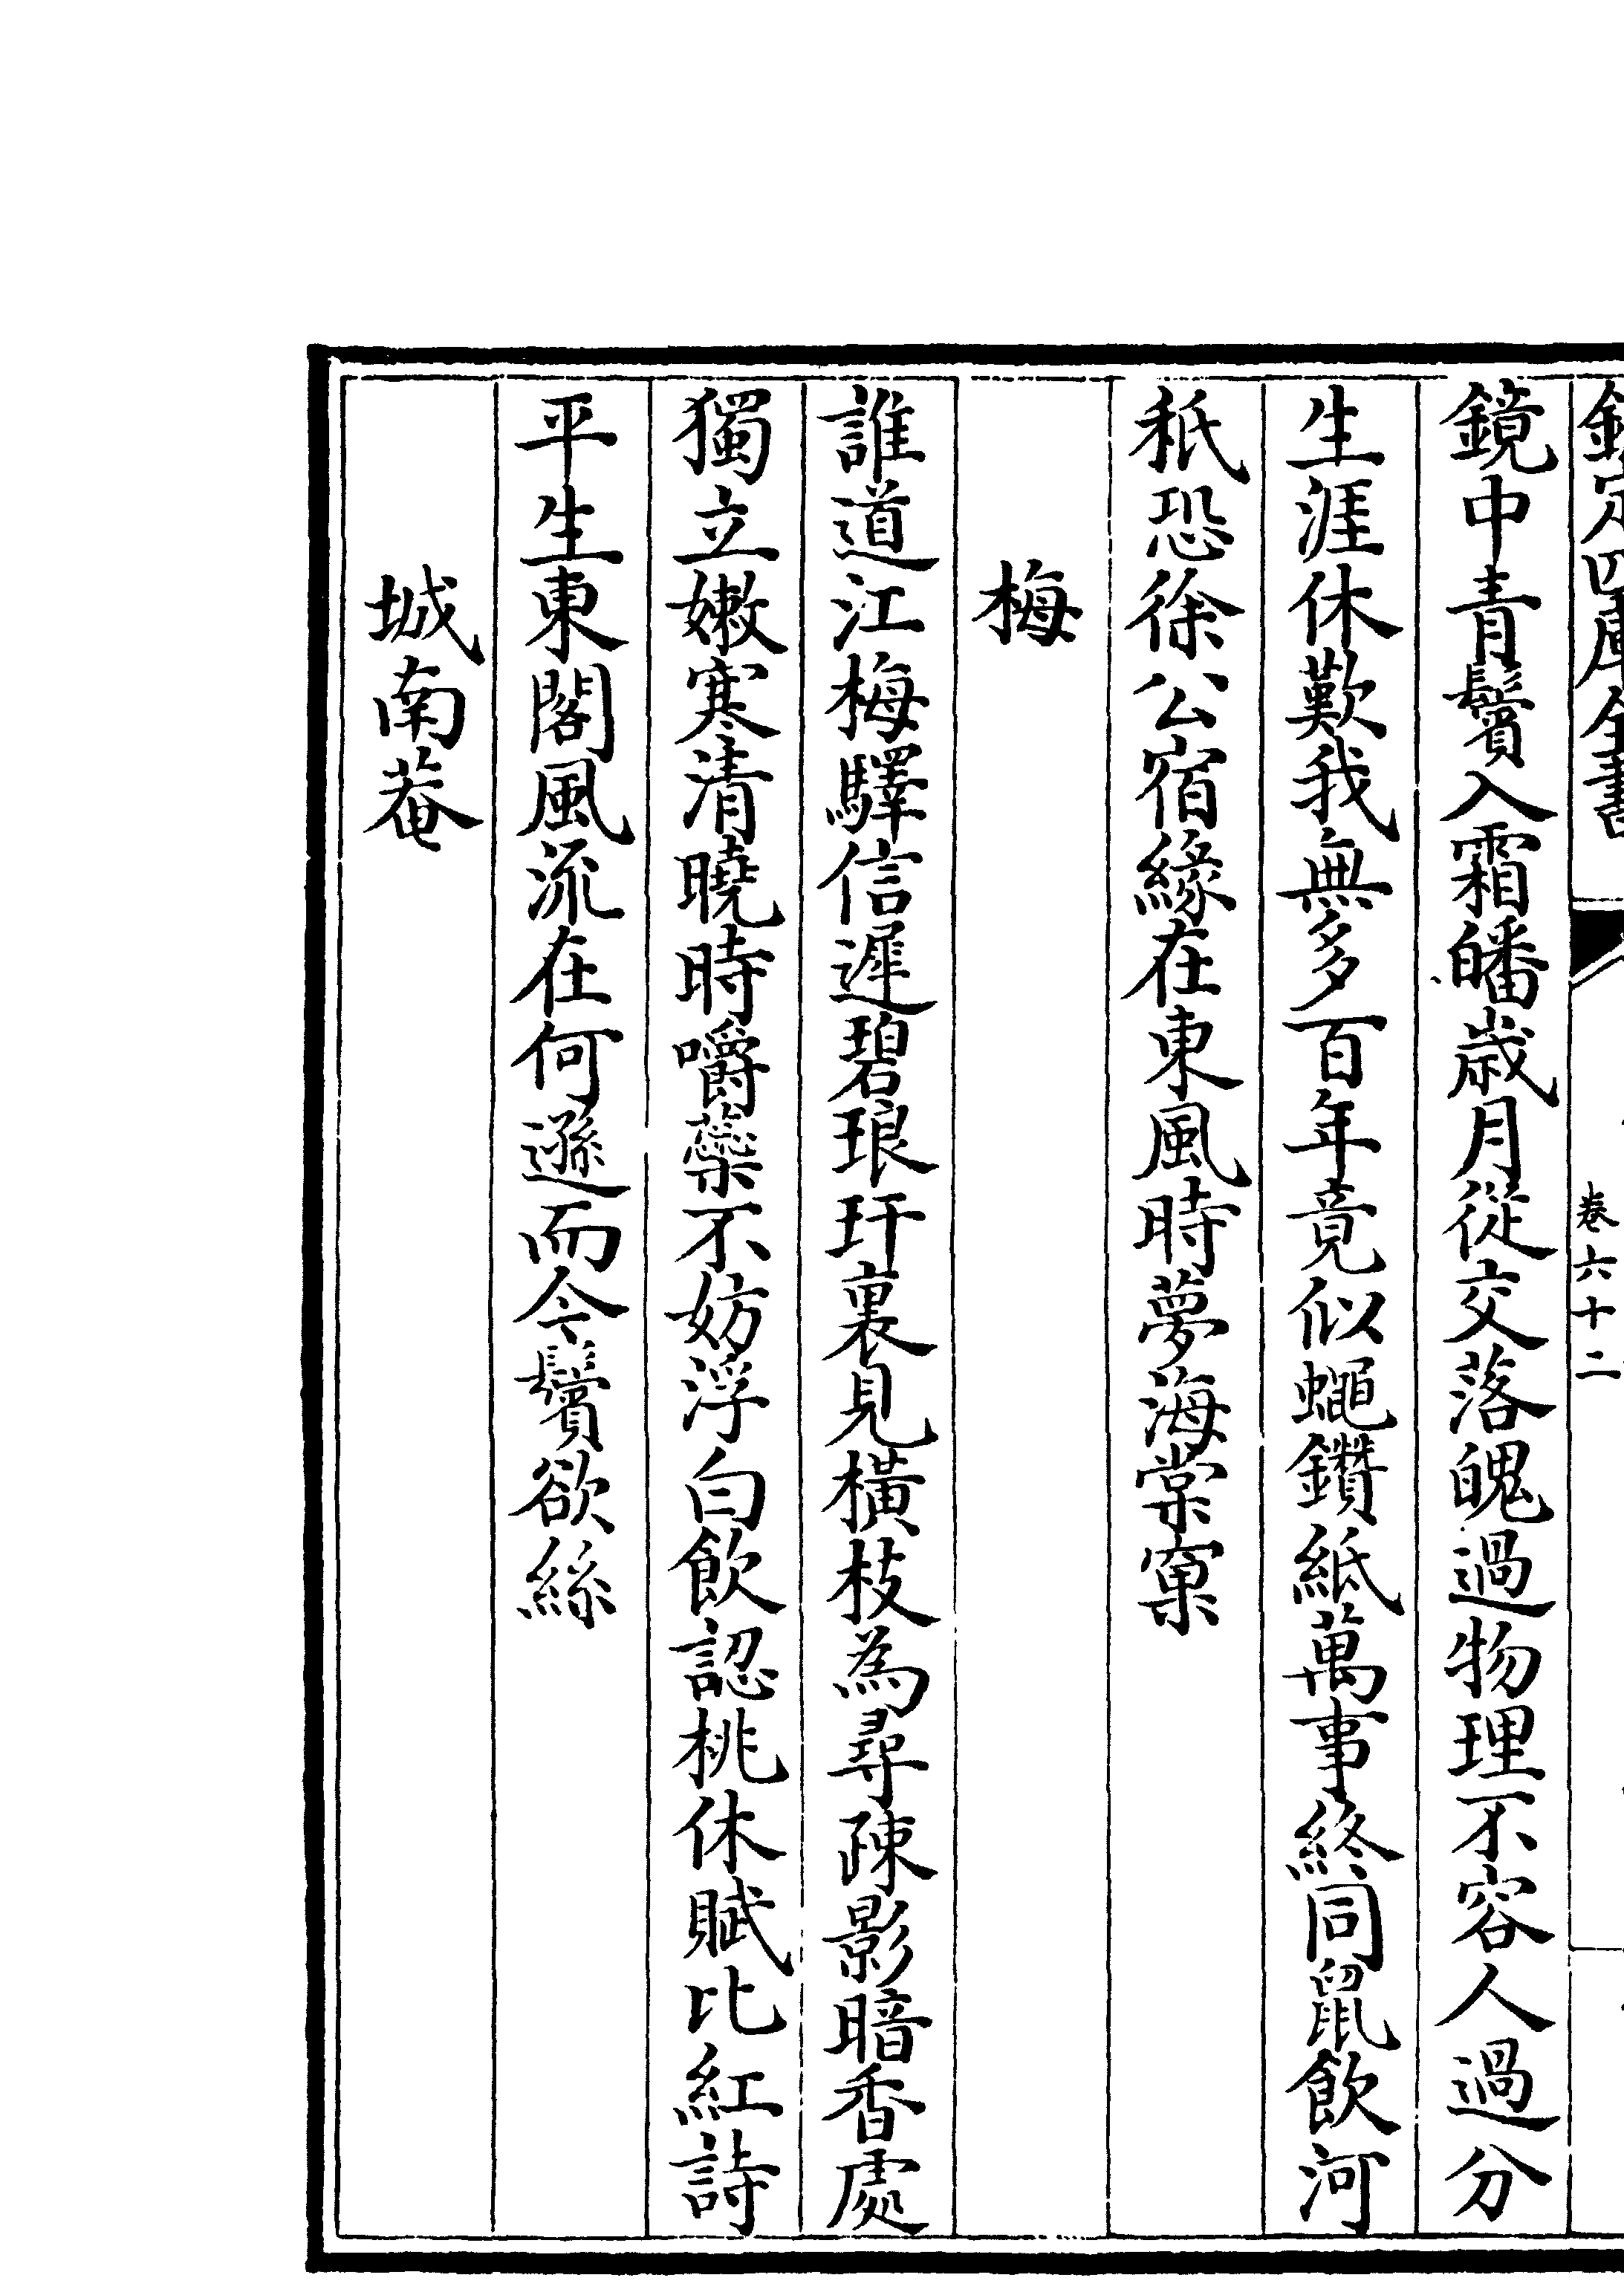 欽定四庫全書
卷六十二
鏡中青鬢入霜皤歲月從交落魄過物理不容人過分
生涯休歎我無多百年竟似蠅鑽紙萬事終同鼠飲河
秖恐徐公宿緣在東風時夢海棠窠
梅
誰道江梅驛信遲碧琅玕裏見橫枝為尋疎影暗香處
獨立嫩寒清曉時嚼蘂不妨浮白飲認桃休賦比紅詩
平生東閣風流在何遜而今鬢欲絲
城南菴